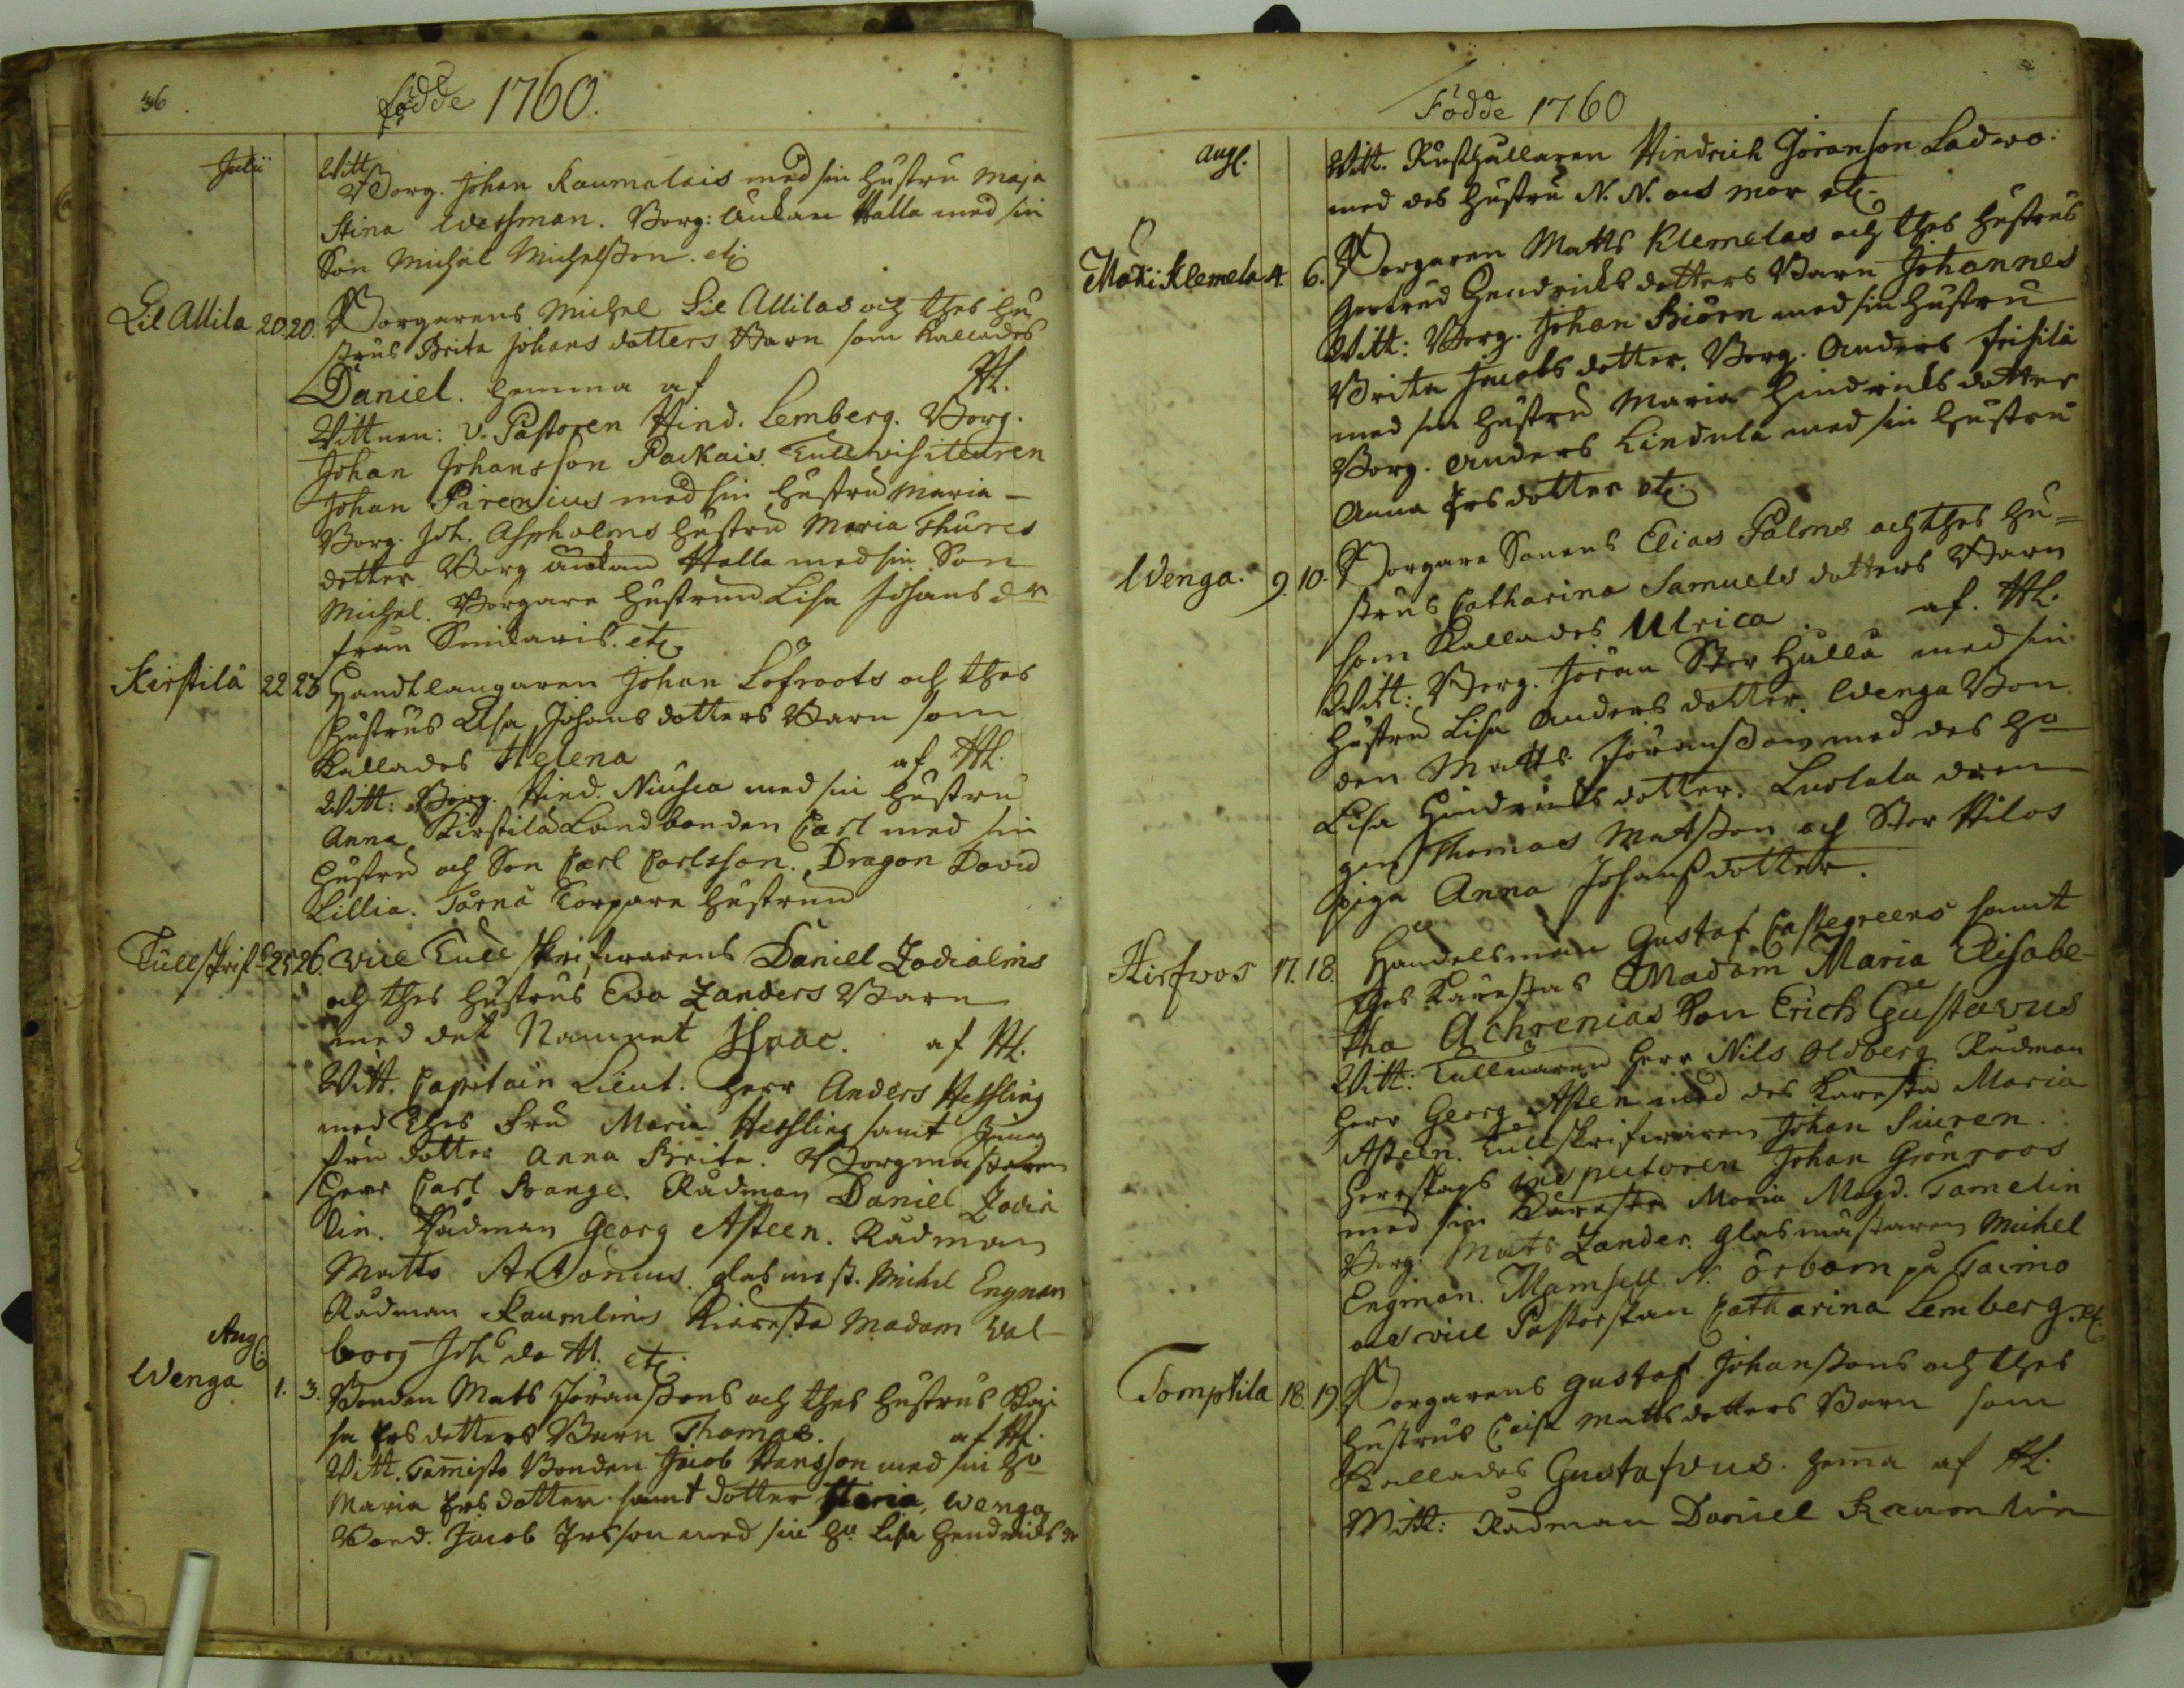 36.
Födde 1760.
Julii
Witt
Borg. Johan Raumalais med sin hustru Maja
Stina Wessman. Borg: Enkan Halla med sin
Son Michel Michelsson. etc
Lil Allila 20. 20. Borgarens Michel Lil Allilas och thes hu
strus Brita Johans dotters Barn som kallades
Daniel. hemma af
Wittnen: v. Pastoren Hind. Lemberg. Borg.
Johan Johansson Packais. Tullvisiteuren
Johan Pirenius med sin hustru Maria
Borg. Joh. Aspholms hustru Maria Thures
dotter. Borg enkan Halla med sin Son
Michel. Borgare hustrun Lisa Johans dr
från etc
Kirstilä 22 23 Handtlangaren Johan Löfroots och thes
hustrus Lisa Johans dotters Barn som
kallades Helena af
Witt: Borg. Hind. Niusca med sin hustru
Anna, Kirstilä Landbonden Carl med sin
hustru och Son Carl Carlsson. Dragon David
Lillia. Torpare hustrun
Tullskrif 25 26. Vice Tullskrifwarens Daniel Zodialins
och thes hustrus Ewa Zanders Barn
med det Namnet Isaac. af
Witt. Capitain Lieut. Herr Anders Hessling
med thes Fru Maria Hessling samt Jung
fru dotter Anna Brita. Borgmästaren
Herr Carl Range. Rådman Daniel Zodia
lin. Rådman Georg Asteen. Rådman
Matts glasmäst. Michel Engman
Rådman Raumlins Käresta Madam Wal
borg etc
Aug.
Wenga 1. 3. Bonden Mats Jöranssons och thes hustrus Kai
sa Ers dotters Barn Thomas. af
Witt. Tammisto Bonden Jacob Hansson med sin hu
Maria Ers dotter samt dotter Maria, Wenga
Bond. Jacob Ersson med sin hu Lisa Hendrichs dr
Födde 1760
Aug.
Witt. Rusthållaren Hindrich Göransson Ladwo:
med des hustru N. N. ous mor etc
Mäki Klemela 4. 6. Borgaren Matts Klemelas och thes hustrus
Gertrud Hendrichs dotters Barn Johannes
Witt: Borg. Johan Biörn med sin hustru
Brita Jacobs dotter. Borg. Anders Frisilä
med sin hustru Maria Hindrichs dotter
Borg. Anders Lindula med sin hustru
Anna Ers dotter etc
Wenga. 9. 10. Borgare Sonens Elias Palms och thes hu=
strus Catharina Samuels dotters Barn
som kallades Ulrica. af
Witt: Borg. Jöran Stor Hulla med sin
hustru Lisa Anders dotter. Wenga Bon
den Matts Jöransson med des hu
Lisa Hindrichs dotter. Luolala dren
gen Thomas Matsson och Stor Hilos
piga Anna Johans dotter.
Kirfwos 17. 18. Handelsman Gustaf Castegreens samt
thes Kärestas Madam Maria Elisabe-
tha Achrenias Son Erich Gustavus
Witt: Tullnären Herr Nils Oldberg Rådman
Herr Georg Asten med des Käresta Maria
Asteen. Tullskrifwaren Johan Siuren.
Herrskaps Inspectoren Johan Grönroos
med sin Käresta Maria Magd. Tamelin
Borg. Mats Zander. glasmästaren Michel
Engman. Mamsell N. Örbom på Taimo
och vice Pastorskan Catharina Lemberg. etc.
Tomptila 18. 19. Borgarens Gustaf Johanssons och thes
hustrus Caisa Matts dotters Barn som
kallades Gustafvus. hema af
Witt: Rådman Daniel Raumlin